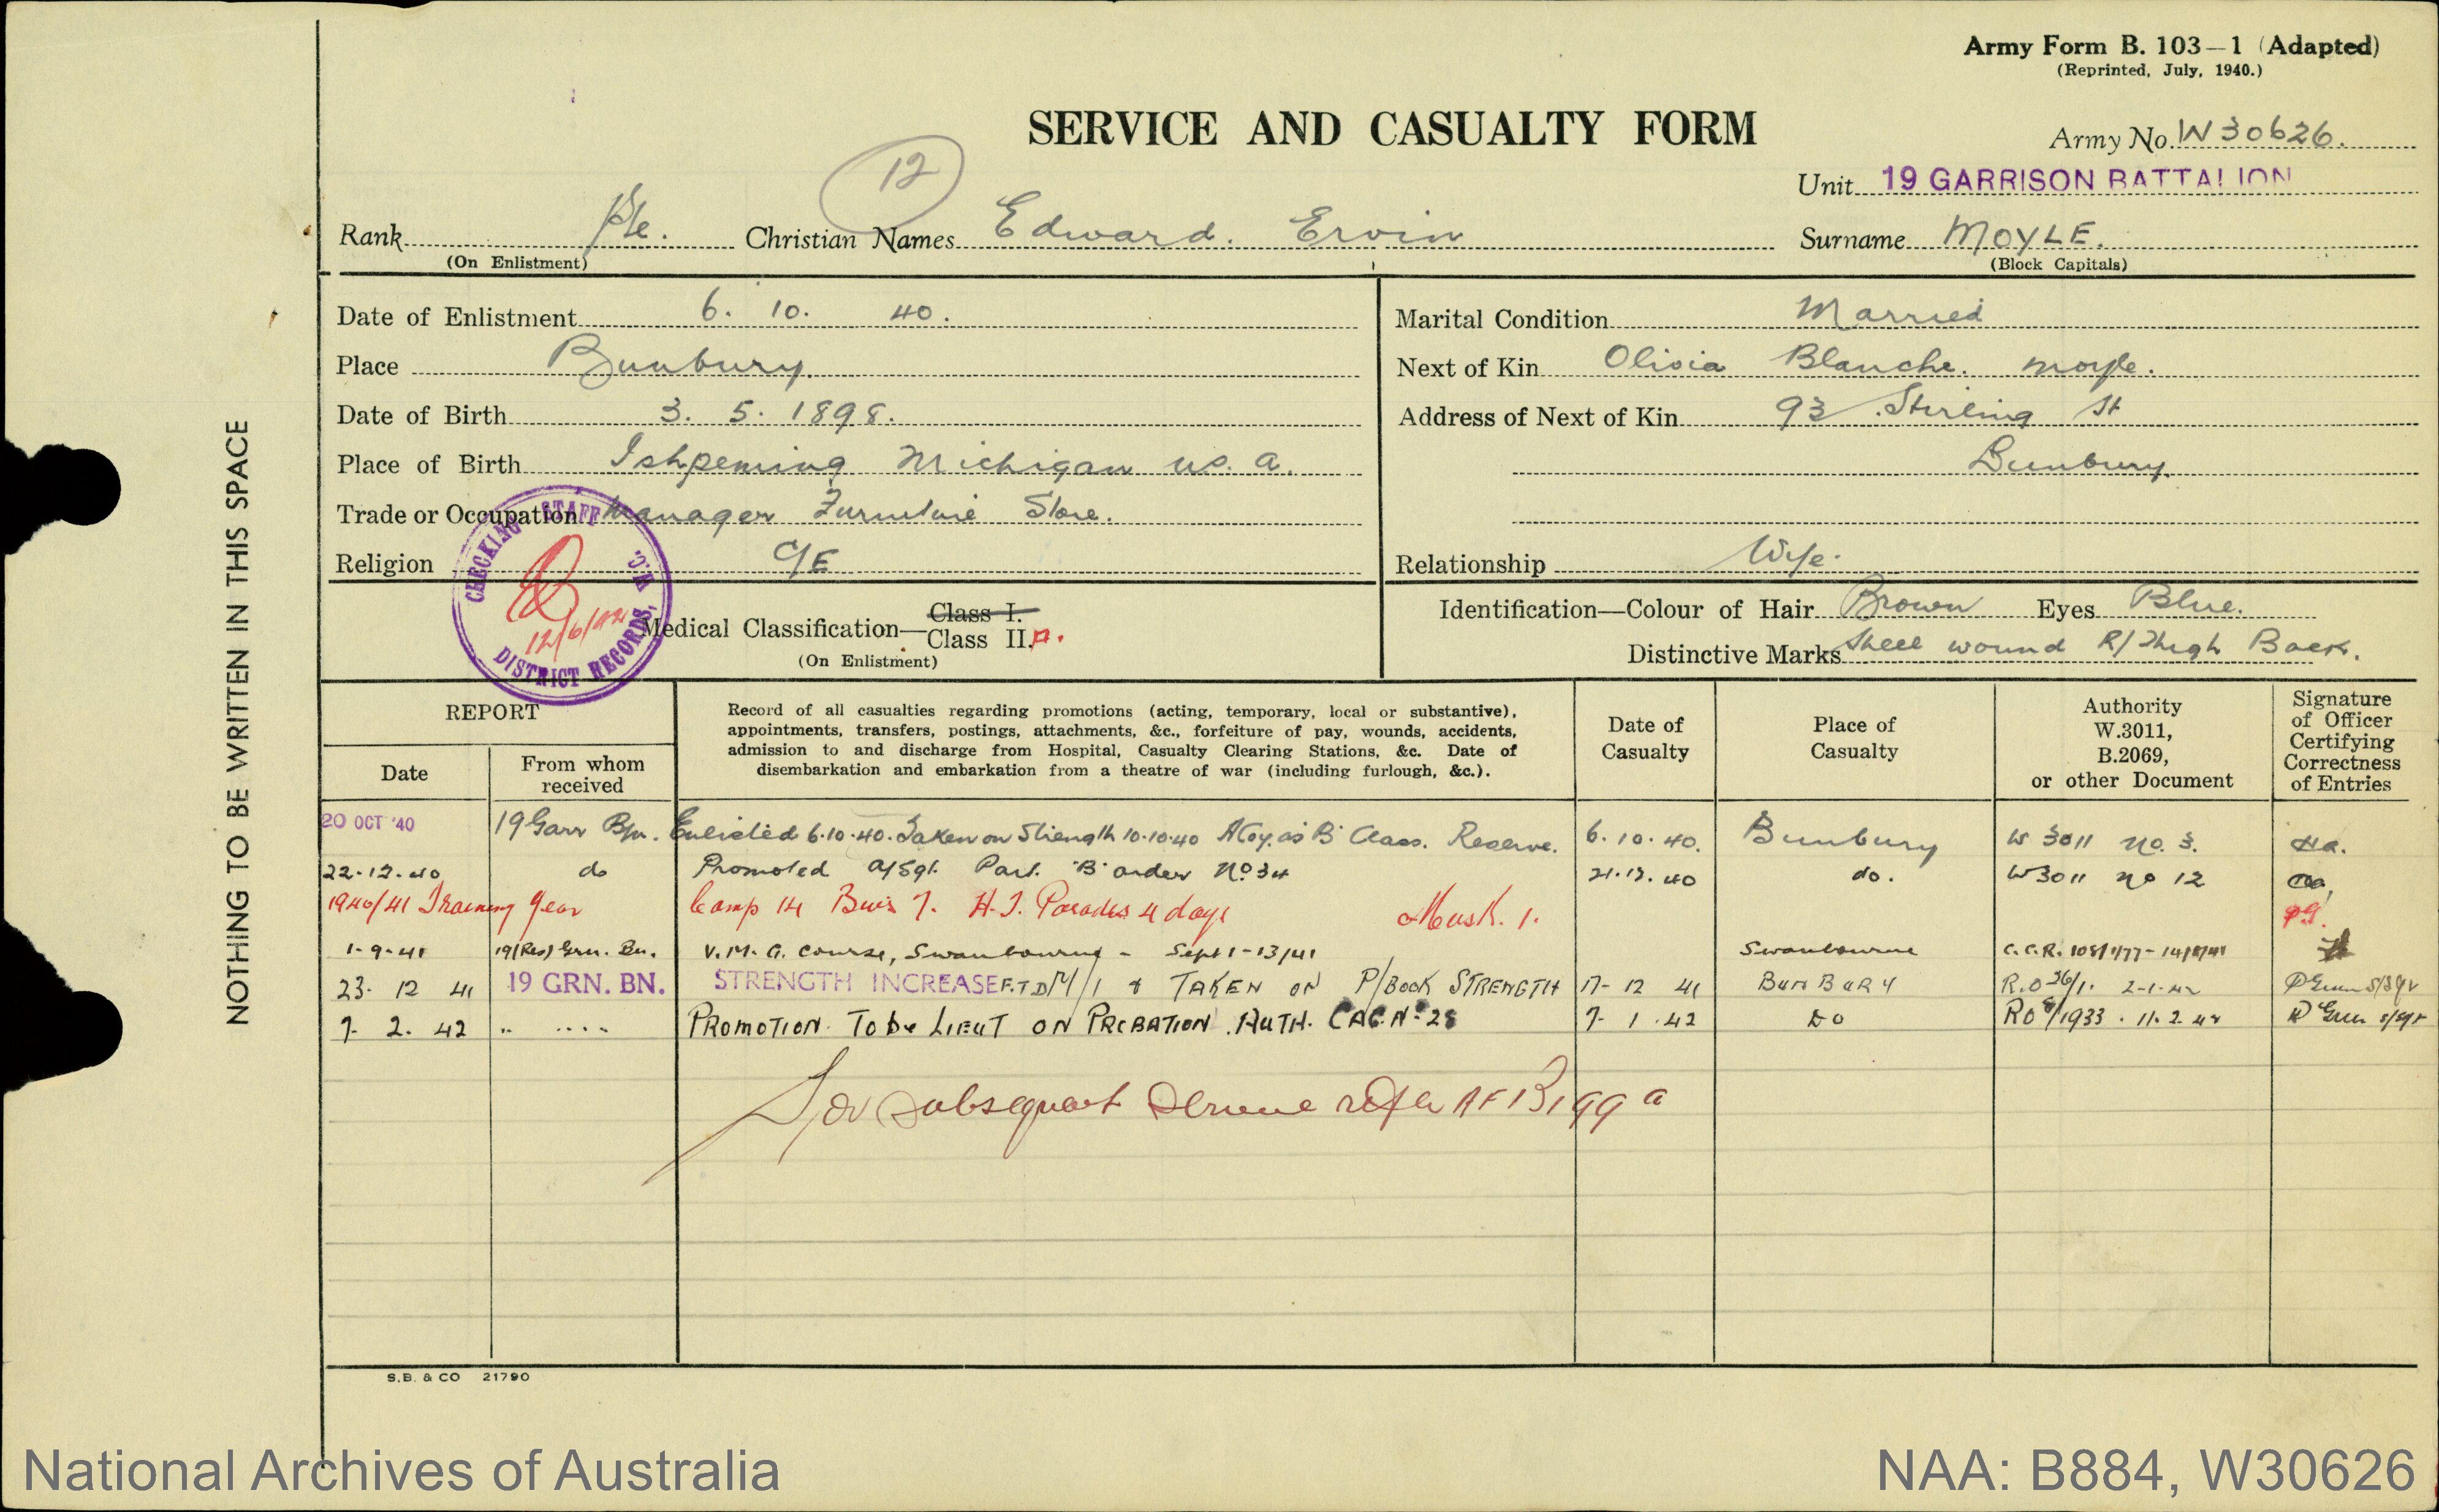 Army Form B. 103—1 (Adapted)
(Reprinted, July, 1940.)
SERVICE AND CASUALTY FORM
Army No. W30626.
12
Unit 19 GARRISON BATTALION
Rank Pte. Christian Names Edward. Ervin Surname MOYLE.
(On Enlistment) (Block Capitals)
NOTHING TO BE WRITTEN IN THIS SPACE
Date of Enlistment 6. 10. 40.
Place Bunbury.
Date of Birth 3. 5. 1898.
Place of Birth Ishpeming Michigan U.S.A.
Trade or Occupation Manager Furniture Store.
Religion C/E
Marital Condition Married
Next of Kin Olivia Blanche. Moyle.
Address of Next of Kin 93 Stirling St
Bunbury.
Relationship Wife.
CHECKING STAFF
DISTRICT RECORDS, W.C.
12/6/42
Medical Classification—Class I.
Class II.
(On Enlistment)
Identification—Colour of Hair Brown Eyes Blue.
Distinctive Marks Shell wound R/Thigh Back.
REPORT
Date
From whom received
Record of all casualties regarding promotions (acting, temporary, local or substantive),
appointments, transfers, postings, attachments, &c., forfeiture of pay, wounds, accidents,
admission to and discharge from Hospital, Casualty Clearing Stations, &c. Date of
disembarkation and embarkation from a theatre of war (including furlough, &c.).
Date of Casualty
Place of Casualty
Authority W.3011, B.2069, or other Document
Signature of Officer Certifying Correctness of Entries
20 OCT '40 19 Garr Bn. Enlisted 6.10.40. Taken on Strength 10.10.40 A Coy. as 'B' Class. Reserve. 6. 10. 40. Bunbury W 3011 No. 3.
22-12-40 do Promoted A/Sgt. Part. "B" order No 34 21.12.40 do. W3011 No 12
1940/41 Training Year Camp 14 Bivs 7. H.T. Parades 4 days Musk. 1.
1-9-41 19(Res) Grn. Bn. V.M.G. Course, Swanbourne - Sept 1-13/41 Swanbourne
23- 12 41 19 GRN. BN. STRENGTH INCREASE F.T.D. M/1 & TAKEN ON P/BOOK STRENGTH 17- 12 41 BUNBURY R.O 36/1. 2-1-42
7. 2. 42 " " " PROMOTION. To be LIEUT ON PROBATION. AUTH. CAC.No 28 7- 1. 42 DO RO 8/1933. 11.2.42
For subsequent service refer AF B199a
S.B. & CO 21790
National Archives of Australia
NAA: B884, W30626